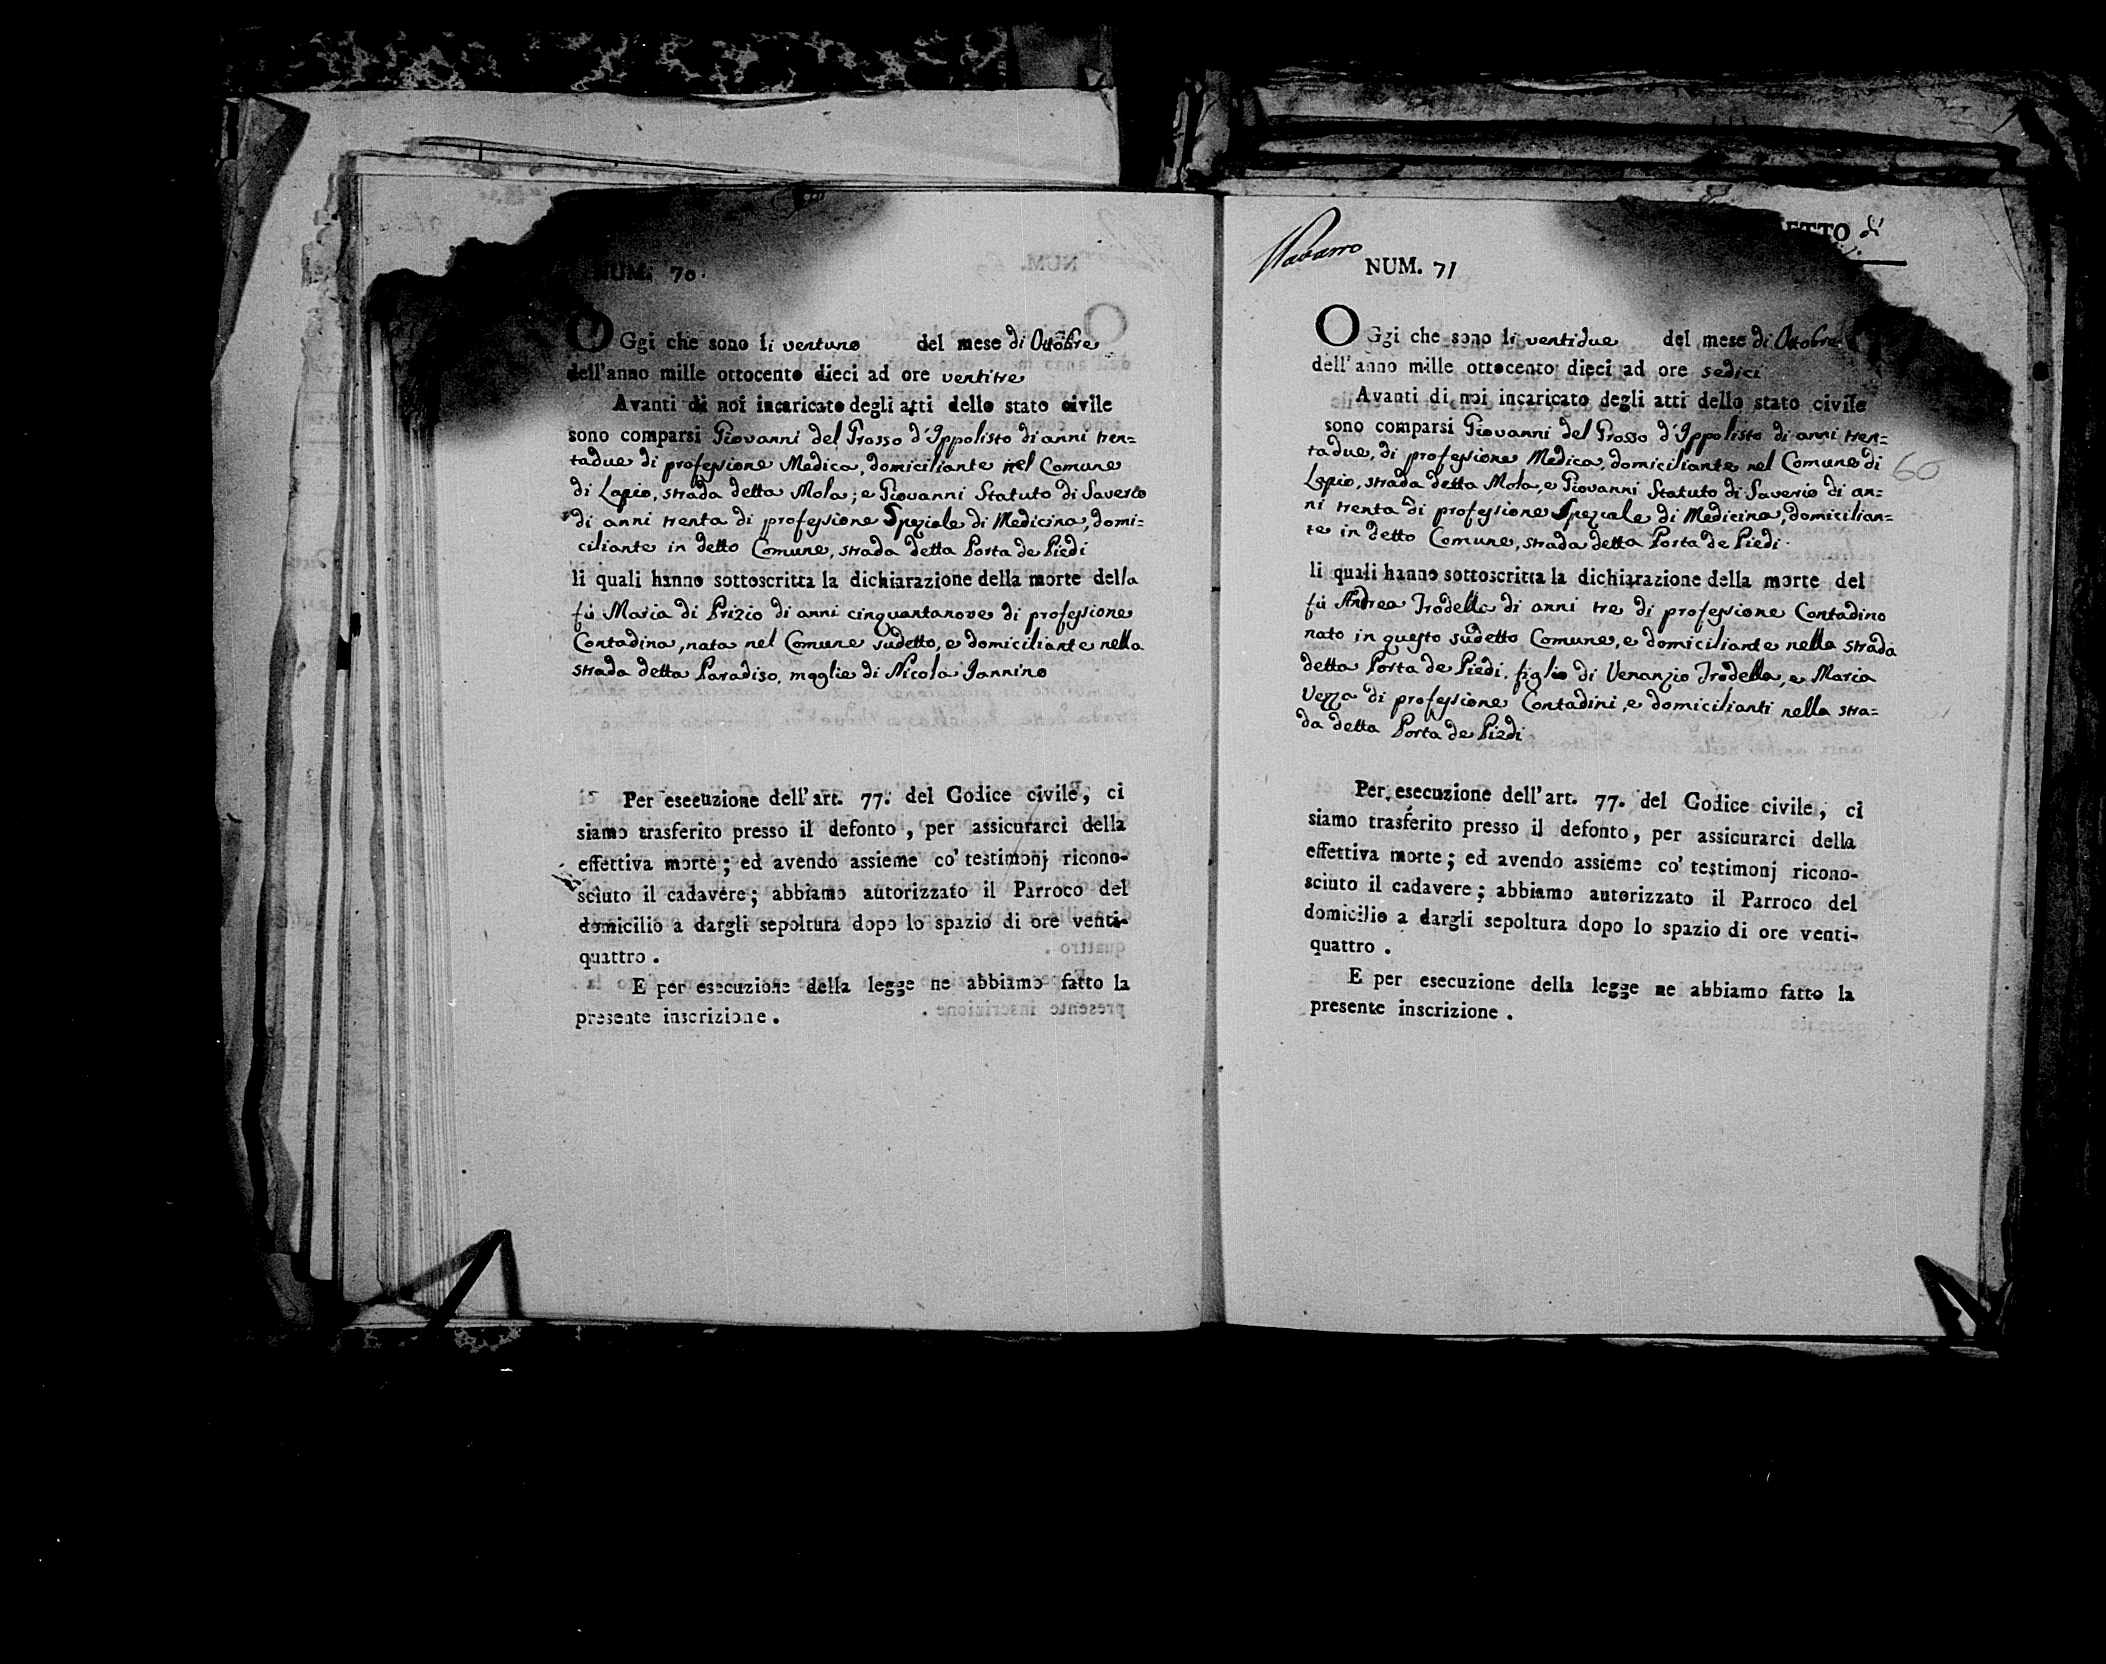 NUM. 70.
OGgi che sono li ventuno del mese di Ottobre
dell'anno mille ottocento dieci ad ore ventitre
Avanti di noi incaricato degli atti dello stato civile
sono comparsi Giovanni del Grosso d'Ippolisto di anni tren=
tadue di professione Medica, domiciliante nel Comune
di Lapio, strada detta Mola; e Giovanni Statuto di Saverio
di anni trenta di professione Speziale di Medicina, domi=
ciliante in detto Comune, strada detta Porta de Piedi
li quali hanno sottoscritta la dichiarazione della morte della
fù Maria di Prizio di anni cinquantanove di professione
Contadina, nata nel Comune sudetto, e domiciliante nella
strada detta Paradiso, moglie di Nicola Iannino
Per esecuzione dell'art. 77. del Codice civile, ci
siamo trasferito presso il defonto, per assicurarci della
effettiva morte; ed avendo assieme co' testimonj ricono-
sciuto il cadavere; abbiamo autorizzato il Parroco del
domicilio a dargli sepoltura dopo lo spazio di ore venti-
quattro.
E per esecuzione della legge ne abbiamo fatto la
presente inscrizione.
ETTO di
Navarro
NUM. 71
OGgi che sono li ventidue del mese di Ottobre
dell'anno mille ottocento dieci ad ore sedici
Avanti di noi incaricato degli atti dello stato civile
sono comparsi Giovanni del Grosso d'Ippolisto di anni tren=
tadue, di professione Medica, domiciliante nel Comune di
60
Lapio, strada detta Mola, e Giovanni Statuto di Saverio di an=
ni trenta di professione Speziale di Medicina, domicilian=
te in detto Comune, strada detta Porta de Piedi.
li quali hanno sottoscritta la dichiarazione della morte del
fù Andrea Trodella di anni tre di professione Contadino
nato in questo sudetto Comune, e domiciliante nella strada
detta Porta de Piedi, figlio di Venanzio Trodella, e Maria
Vezza di professione Contadini, e domicilianti nella stra=
da detta Porta de Piedi
Per esecuzione dell'art. 77. del Codice civile, ci
siamo trasferito presso il defonto, per assicurarci della
effettiva morte; ed avendo assieme co' testimonj ricono-
sciuto il cadavere; abbiamo autorizzato il Parroco del
domicilio a dargli sepoltura dopo lo spazio di ore venti-
quattro.
E per esecuzione della legge ne abbiamo fatto la
presente inscrizione.